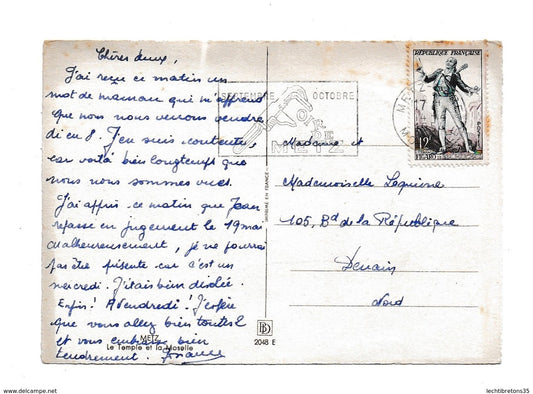 Chères deux,
J'ai reçu ce matin un
mot de maman qui m'apprend
que nous nous verrons vendre
di en 8. J'en suis contente,
car voilà bien longtemps que
nous nous sommes vues.
J'ai appris ce matin que Jean
repasse en jugement le 19 mai
Malheureusement, je ne pourrai
pas être présente car c'est un
mercredi. J'étais bien désolée.
Enfin! A vendredi! J'espère
que vous allez bien toutes 2
et vous embrasse bien
tendrement.
METZ
Le Temple et la Moselle
2048 E
IMPRIMÉ EN FRANCE
SEPTEMBRE OCTOBRE
METZ
RÉPUBLIQUE FRANÇAISE
12F
FIGARO
Madame et
Mademoiselle
105, Bd de la République
Denain
Nord
delcampe.net
lechtibretons35